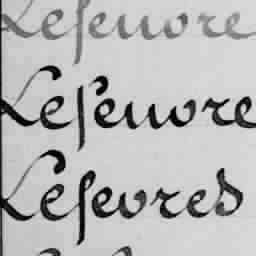 Lefeuvre
Lefeuvre
Lefevres